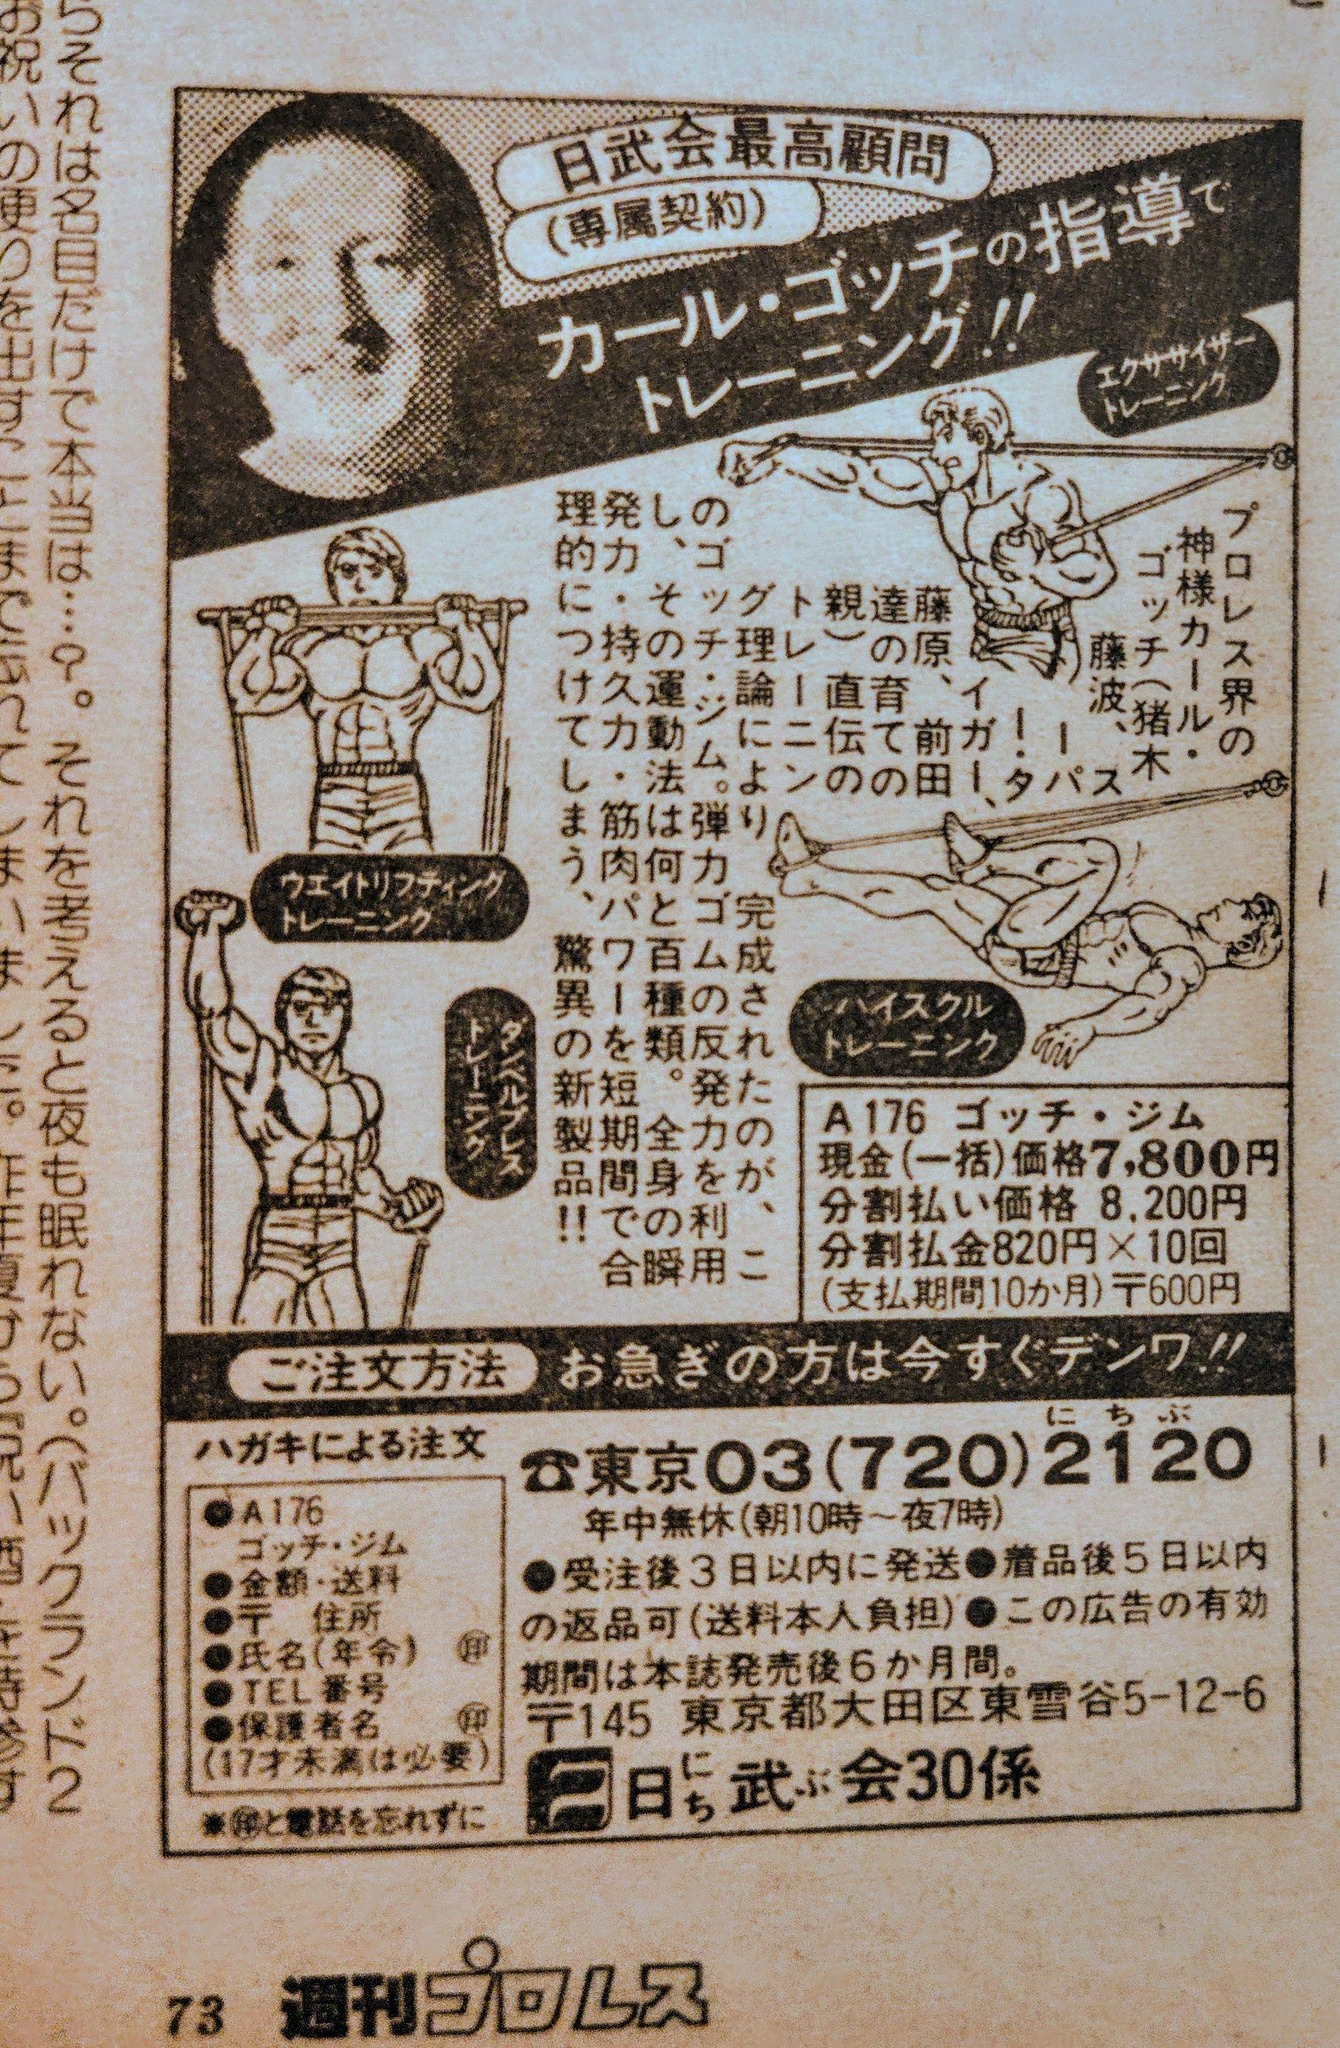 日武会最高顧問
(専属契約)
カール・ゴッチの指導で
トレーニング!!
エクササイザー
トレーニング
プロレス界の
神様カール・
ゴッチ(猪木
藤波、ス
ーパ
ー!タ
イガー、
藤原、前田
達の育ての
親)直伝の
トレーニン
グ理論により 完成されたのが、こ
のゴッチ・ジム。弾力ゴムの反発力を利用
し、その運動法は何と百種類。全身の瞬
発力・持久力・筋肉パワーを短期間で合
理的につけてしまう、驚異の新製品!!
ウエイトリフティング
トレーニング
ダンベルプレス
トレーニング
ハイスクル
トレーニング
A176 ゴッチ・ジム
現金(一括)価格7,800円
分割払い価格 8,200円
分割払金820円×10回
(支払期間10か月)〒600円
ご注文方法 お急ぎの方は今すぐデンワ!!
ハガキによる注文
●A176
ゴッチ・ジム
●金額・送料
●〒 住所
●氏名(年令) ㊞
●TEL番号
●保護者名 ㊞
(17才未満は必要)
※㊞と電話を忘れずに
にちぶ
☎東京03(720)2120
年中無休(朝10時〜夜7時)
●受注後3日以内に発送●着品後5日以内
の返品可(送料本人負担)●この広告の有効
期間は本誌発売後6か月間。
〒145 東京都大田区東雪谷5-12-6
日にち武ぶ会30係
らそれは名目だけで本当は…?。それを考えると夜も眠れない。(バックランド2
73 週刊プロレス